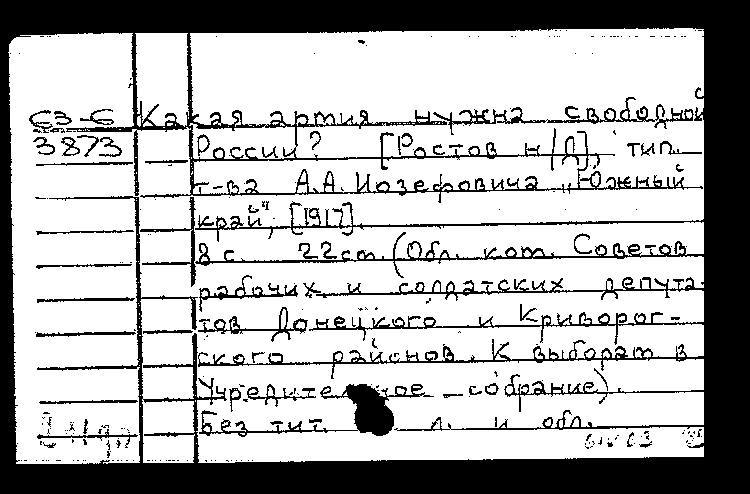 СЗ-6 Какая артия нужна свободной
3873 России? [Ростов н/Д], тип.
т-ва А.А. Иозефовича „Южный
край", [1917].
8 с. 22 см. (Обл. ком. Советов
рабочих и солдатских депута-
тов Донецкого и Криворог-
ского районов. К выборам в
Учредительное собрание).
Без тит. л. и обл.